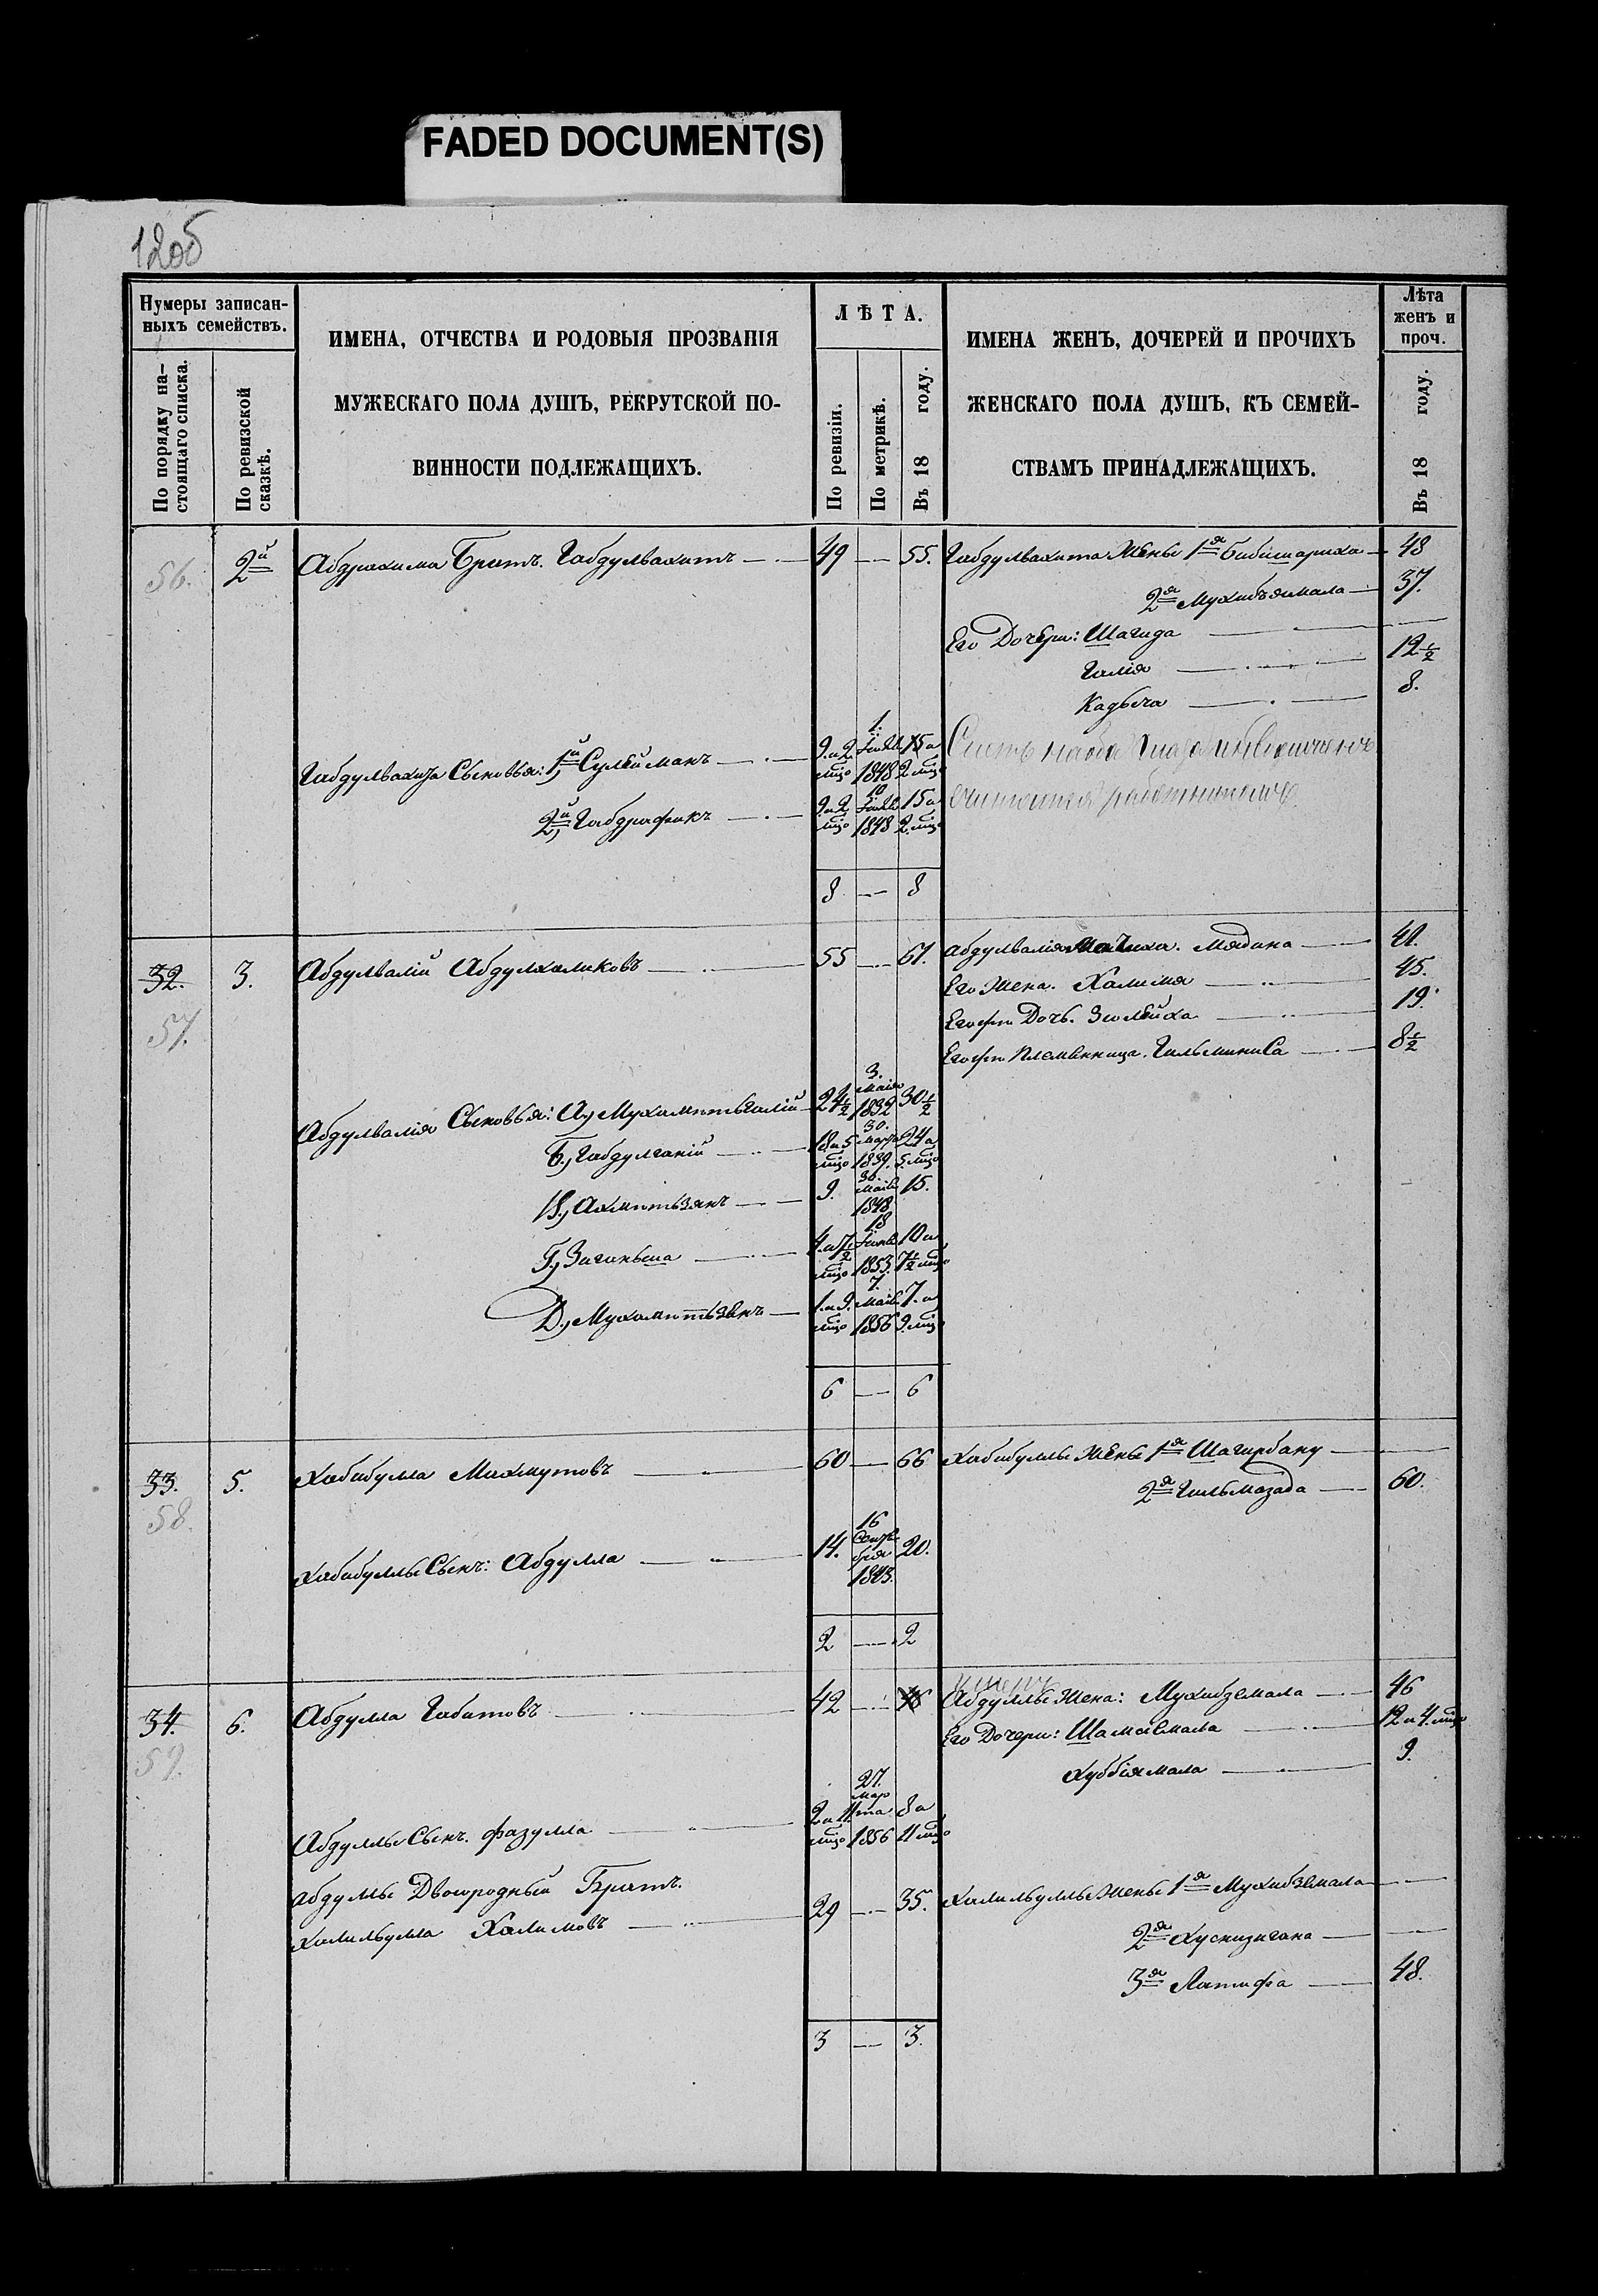 FADED DOCUMENT(S)
120б
Нумеры записан-
ныхъ семействъ.
По порядку на-
стоящаго списка.
По ревизской
сказкѣ.
ИМЕНА, ОТЧЕСТВА И РОДОВЫЯ ПРОЗВАНІЯ
МУЖЕСКАГО ПОЛА ДУШЪ, РЕКРУТСКОЙ ПО-
ВИННОСТИ ПОДЛЕЖАЩИХЪ.
ЛѢТА.
По ревизіи.
По метрикѣ.
Въ 18 году.
ИМЕНА ЖЕНЪ, ДОЧЕРЕЙ И ПРОЧИХЪ
ЖЕНСКАГО ПОЛА ДУШЪ, КЪ СЕМЕЙ-
СТВАМЪ ПРИНАДЛЕЖАЩИХЪ.
Лѣта
женъ и
проч.
Въ 18 году.
56. 2й Абдрахима Братъ. Габдулвахитъ 49 — 55. Габдулвахита Жены 1я Бибишариха 48
2я Мухибъямала 37.
Его Дочери: Шагида —
Галія 12 1/2
Кадыча 8.
Габдулвахита Сыновья: 1й, Сулейманъ 9. и 2 мцо 1. 1848 15 и 2 мцо
2й, Габдрафикъ 9. и 2 мцо 10 1848 15 и 2. мцо
8 — 8
32. 57. 3. Абдулвалій Абдулхаликовъ 55 — 61. Абдулвалія Мачиха. Мядина 41.
Его Жена. Халимя 45.
Его Дочь. Зюлейха 19.
Его Племянница. Гильминиса 8 1/2
Абдулвалія Сыновья: А, Мухаметьгалій 24 1/2 3. Маія 1832 30 1/2
Б., Габдулганій 18 и 5 мцо 30. Марта 1839. 24 и 5. мцо
В., Ахметьзянъ 9. 30. Маія 1848 15.
Г., Заганьша 4. и 7 1/2 мцо 18 1853. 10 и 7 1/2 мцо
Д., Мухаметьзянъ 1. и 9. мцо 7. Маія 1856 7. и 9. мцо
6 — 6
33. 58. 5. Хабибулла Махмутовъ 60 — 66 Хабибуллы Жены 1я Шагирбану —
2я Гильмазада 60.
Хабибуллы Сынъ: Абдулла 14. 16 Сентября 1843. 20.
2 — 2
34. 59. 6. Абдулла Габитовъ 42 — 48 Абдуллы Жена: Мухибземала 46
Его Дочери: Шамсемала 12 и 4. мцо
Хуббіямала 9.
Абдуллы Сынъ. Фазулла 2 и 11 мцо 27. Марта 1856 8 и 11 мцо
Абдуллы Двоюродный Братъ.
Халильулла Халимовъ 29 — 35. Халильуллы Жены 1я Мухибземала —
2я Хуснизигана —
3я Латифа 48.
3 — 3.